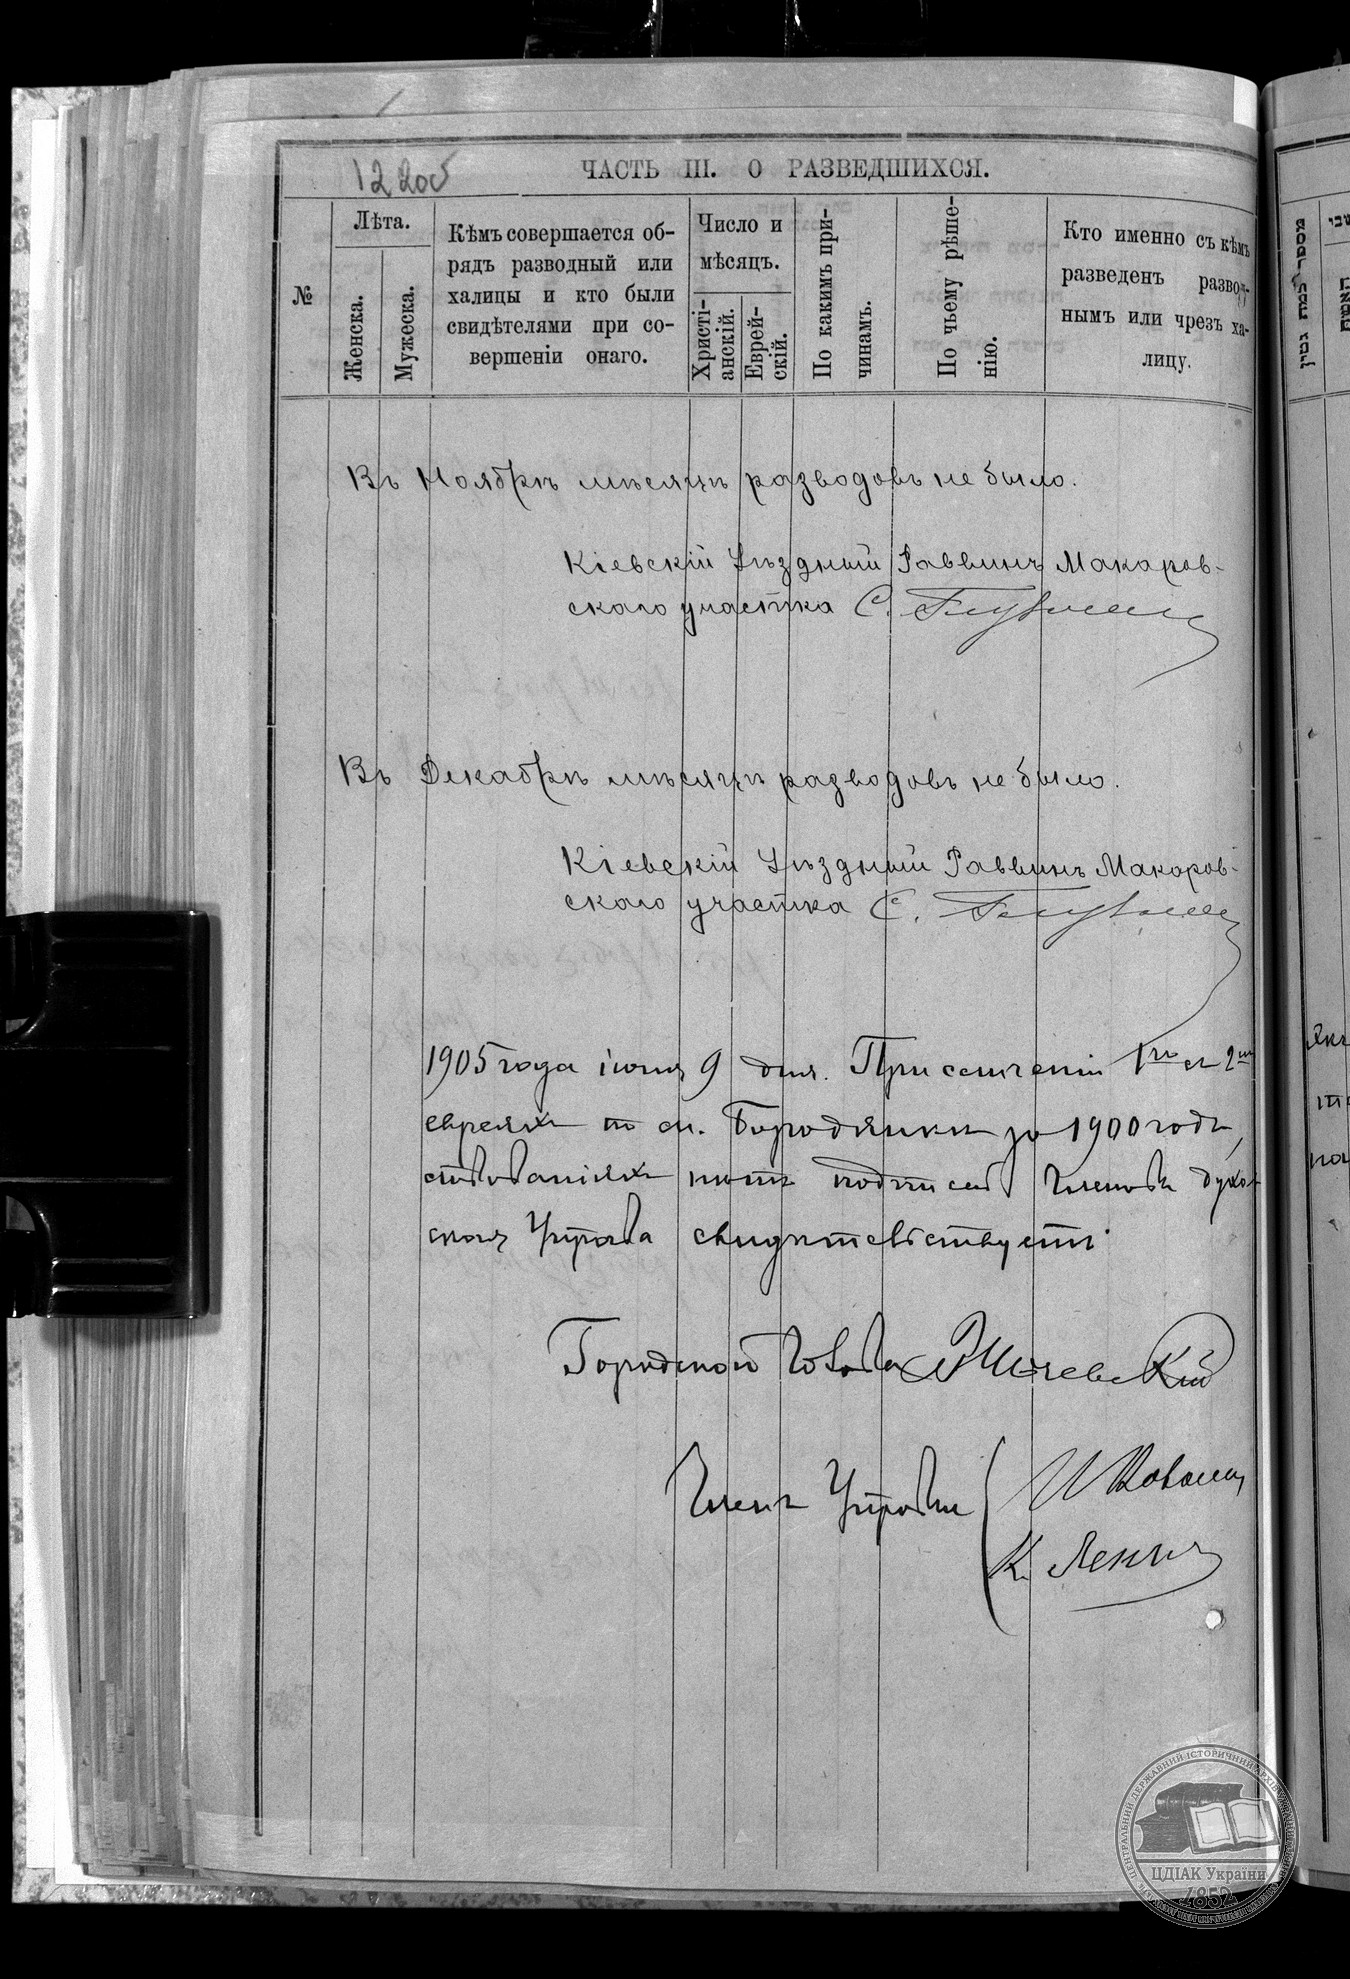 12 200б
ЧАСТЬ III. О РАЗВЕДШИХСЯ.
№
Лѣта.
Женска.
Мужеска.
Кѣмъ совершается об-
рядъ разводный или
халицы и кто были
свидѣтелями при со-
вершеніи онаго.
Число и
мѣсяцъ.
Христі-
анскій.
Еврей-
скій.
По какимъ при-
чинамъ.
По чьему рѣше-
нію.
Кто именно съ кѣмъ
разведенъ развод-
нымъ или чрезъ ха-
лицу.
Въ Ноябрѣ мѣсяцѣ разводовъ не было.
Кіевскій Уѣздный Раввинъ Макаров-
скаго участка С.
Въ Декабрѣ мѣсяцѣ разводовъ не было.
Кіевскій Уѣздный Раввинъ Макаров-
скаго участка С.
1905 года іюня 9 дня. При сличеніи 1го съ 2мъ
евреяхъ по м. Бородянки за 1900 годъ,
нѣтъ подписей Членовъ духов
ская Управа свидѣтельствуетъ.
Городской Голова
Члены Управы
К.
מספר למת גטין
האשה
ЦЕНТРАЛЬНИЙ ДЕРЖАВНИЙ ІСТОРИЧНИЙ АРХІВ УКРАЇНИ
ЦДІАК України
1852